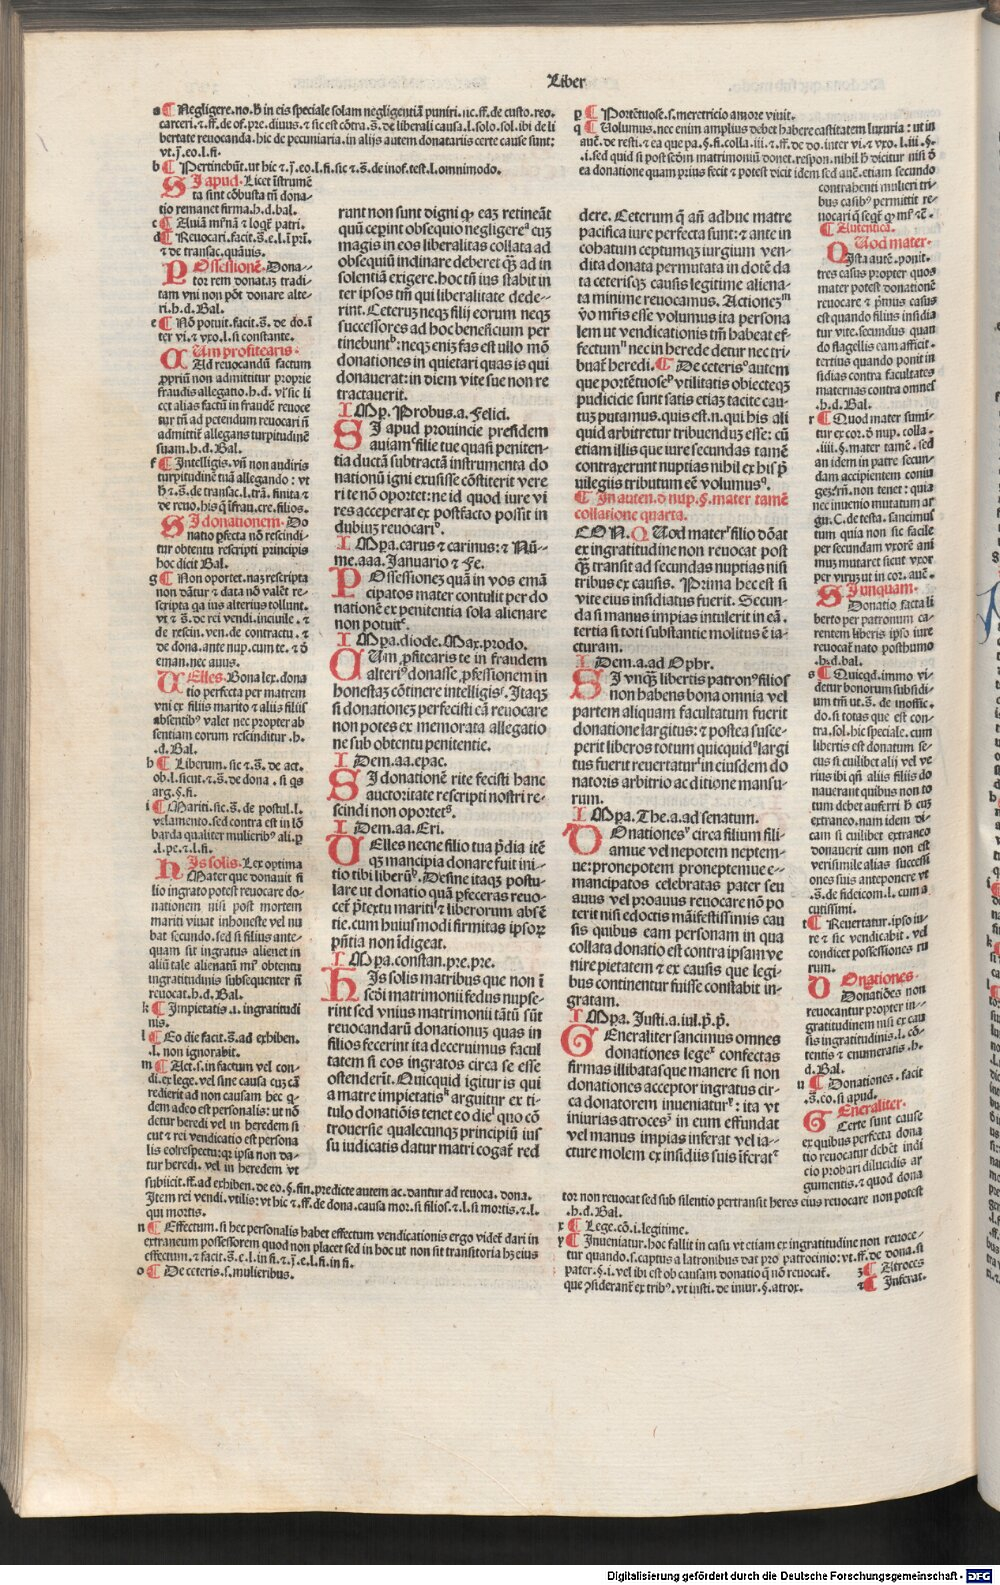 Liber
a ¶ Negligere.no.ꝙ in eis speciale solam negligentiā puniri.ut.ff.de custo.reo.
carceri.⁊.ff.de of.pre.diuus.⁊ sic est cōtra.s̄.de liberali causa.l.solo.sol.ibi de li
bertate reuocanda.hic de pecuniaria.in alijs autem donatariis certe cause sunt:
vt.j̄.eo.l.fi.
b ¶ Pertinebūt.ut hic ⁊.j̄.eo.l.fi.sic ⁊.s̄.de inof.test.l.omnimodo.
SI apud. Licet īstrumē
ta sint cōbusta tn̄ dona-
tio remanet firma.h.d.bal.
c ¶ Auiā mr̄nā ⁊ logr̄ patri.
d ¶ Reuocari.facit.s̄.e.l.ī pri.
⁊ de transac.quāuis.
POssessionē. Dona-
tor rem donatā tradi-
tam vni non pōt donare alte-
ri.h.d.Bal.
e ¶ Nō potuit.facit.s̄.de do.ī
ter vi.⁊ vxo.l.si constante.
CUm profitearis.
Ad reuocandū factum
proprium non admittitur proprie
fraudis allegatio.h.d. vl sic li
cet alias factū in fraudē reuoce
tur tn̄ ad petendum reuocari nō
admittit allegans turpitudinē
suam.h.d.Bal.
f ¶ Intelligis.vn̄ non audiris
turpitudinē tuā allegando: vt
h ⁊.s̄.de transac.l.trā.finita ⁊
de reuo.his q̄ ī frau.cre.filios.
SI donationem. Do
natio pfecta nō rescindi-
tur obtentu rescripti principis
hoc dicit Bal.
g ¶ Non oportet.naꝫ rescripta
non dātur ⁊ data nō valēt re-
scripta q̄a ius alterius tollunt.
vt ⁊ s̄.de rei vendi.inciuile.⁊
de rescin.ven.de contractu.⁊
de dona.ante nup.cum te.⁊ d̄
eman.nec auus.
UElles. Bona lex.dona
tio perfecta per matrem
vni ex filiis marito ⁊ aliis filiis
absentib⁹ valet nec propter ab
sentiam eorum rescinditur.h.
.d.Bal.
h ¶ Liberum.sic ⁊ s̄.de act.
ob.l.sicut.⁊ s̄.de dona.si qs
arg.§.fi.
i ¶ Mariti.sic.s̄.de postul.l.
velamento.sed contra est in lō
barda qualiter mulierib⁹ ali.p
.l.pe.⁊.l.fi.
HIs solis. Lex optima
Mater que donauit fi
lio ingrato potest reuocare do-
nationem nisi post mortem
mariti viuat inhoneste vel nu
bat secundo.sed si filius ante-
quam sit ingratus alienet in
aliū tale alienatū nō obtentu
ingratitudinis subsequenter n̄
reuocat.h.d.Bal.
k ¶ Impietatis.i.ingratitudi
nis.
l ¶ Eo die facit.s̄.ad exhiben.
.l.non ignorabit.
m ¶ Act.s.in factum vel con-
di.ex lege.vel sine causa cuꝫ cā
redierit ad non causam hec q̄-
dem adeo est personalis: ut nō
detur heredi vel in heredem si
cut ⁊ rei vendicatio est persona
lis eo respectu: qꝫ ipsa non da-
tur heredi.vel in heredem vt
subiicit.ff.ad exhiben.de eo.§.fin.predicte autem ac.dantur ad reuoca.dona.
Item rei vendi.vtilis: vt hic ⁊.ff.de dona.causa mor.si filios.⁊.l.si mortis.⁊.l.
qui mortis.
n ¶ Effectum.si hec personalis habet effectum vendicationis ergo videt̄ dari in
extraneum possessorem quod non placet sed in hoc ut non sit transitoria hꝫ eius
effectum.⁊ facit.s̄.e.l.in fi.⁊.j̄.e.l.fi.in fi.
o ¶ De ceteris.s.mulieribus.
runt non sunt digni qꝫ eaꝫ retineāt
quū ceꝑint obsequio negligereᵃ euꝫ
magis in eos liberalitas collata ad
obsequiū inclinare deberet qꝫ ad in
solentiā exigere.hoc tn̄ ius stabit in
ter ipsos tm̄ qui liberalitate dede-
rint.Ceteruꝫ neqꝫ filij eorum neqꝫ
successores ad hoc beneficium per
tinebuntᵇ:neqꝫ enīꝫ fas est ullo mō
donationes in quietari quas is qui
donauerat:in diem vite sue non re
tractauerit.
IMp.Probus.a.Felici.
SI apud prouincie presidem
auiamᶜfilie tue quasi peniten-
tia ductā subtractā instrumenta do
nationū igni exussisse cōstiterit vere
ri te nō oportet:ne id quod iure vi
res acceperat ex postfacto possit in
dubiuꝫ reuocariᵈ.
IMpa.carus ⁊ carinus:⁊ Nū-
me.aaa.Ianuario ⁊ Fe.
POssessioneꝫ quā in vos emā
cipatos mater contulit per do
nationē ex penitentia sola alienare
non potuitᵉ.
IMpa.diode.Max.prodo.
CUm ꝓfitearis te in fraudem
alteri⁹ donasse ꝓfessionem in
honestaꝫ cōtinere intelligisᶠ.Itaqꝫ
si donationeꝫ perfecisti eā reuocare
non potes ex memorata allegatio
ne sub obtentu penitentie.
IDem.aa.epac.
SI donationē rite fecisti hanc
auctoritate rescripti nostri re-
scindi non oportetᵍ.
IDem.aa.Eri.
UElles necne filio tua p̄dia itē
qꝫ mancipia donare fuit ini-
tio tibi liberūʰ.Desine itaqꝫ postu-
lare ut donatio quā ꝑfeceras reuo-
cet̄ p̄textu maritiⁱ⁊ liberorum absē
tie.cum huiusmodi firmitas ipsoꝵ
pn̄tia non īdigeat.
IMpa.constan.pre.pre.
HIs solis matribus que non ī
secūdi matrimonii fedus nupse-
rint sed vnius matrimonii tātū sūt
reuocandarū donationuꝫ quas in
filios fecerint ita decernimus facul
tatem si eos ingratos circa se esse
ostenderit.Quicquid igitur is qui
a matre impietatisᵏ arguitur ex ti-
tulo donatiōis tenet eo dieˡ quo cō
trouersie qualecunqꝫ principiū ius
su iudicatis datur matri cogat̄ red
dere. Ceterum q̄ an̄ adhuc matre
pacifica iure perfecta sunt:⁊ ante in
cohatum ceptumqꝫ iurgium ven-
dita donata permutata in dotē da
ta ceterisqꝫ causis legitime aliena-
ta minime reuocamus. Actioneꝫᵐ
vō mr̄is esse volumus ita persona
lem ut vendicationis tm̄ habeat ef-
fectumⁿ nec in herede detur nec tri-
buat̄ heredi.¶ De ceterisᵒautem
que portētuoseᵖ vtilitatis obiecteqꝫ
pudicicie sunt satis etiaꝫ tacite cau-
tuꝫ putamus.quis est.n.qui his ali
quid arbitretur tribuenduꝫ esse: cū
etiam illis que iure secundas tamē
contraxerunt nuptias nihil ex his p̄
uilegiis tributum eē volumus⁹.
¶ In auten.d̄ nup.§.mater tamē
collatione quarta.
CON. QUod mater filio dōat
ex ingratitudine non reuocat post
q̄ꝫ transit ad secundas nuptias nisi
tribus ex causis. Prima hec est si
vite eius insidiatus fuerit. Secun-
da si manus impias intulerit in eā.
tertia si toti substantie molitus ē ia-
cturam.
IDem.a.ad Ophr.
SI vnqꝫ libertis patron⁹filios
non habens bona omnia vel
partem aliquam facultatum fuerit
donatione largitus:⁊ postea susce-
perit liberos totum quicquidˢlargi
tus fuerit reuertaturᵗin eiusdem do
natoris arbitrio ac ditione mansu-
rum.
IMpa.The.a.ad senatum.
DOnationesᵘ circa filium fili-
amue vel nepotem neptem-
ue:pronepotem proneptemue e-
mancipatos celebratas pater seu
auus vel proauus reuocare nō po
terit nisi edoctis manifestissimis cau
sis quibus eam personam in qua
collata donatio est contra ipsam ve
nire pietatem ⁊ ex causis que legi-
bus continentur fuisse constabit in-
gratam.
IMpa.Iusti.a.iul.p̄.p̄.
GEneraliter sancimus omnes
donationes legeˣ confectas
firmas illibatasque manere si non
donationes acceptor ingratus cir-
ca donatorem inueniaturʸ: ita vt
iniurias atrocesᶻ in eum effundat
vel manus impias inferat vel ia-
cture molem ex insidiis suis īferat
p ¶ Portētuose.s.meretricio amore viuit.
q ¶ Uolumus.nec enim amplius debet habere castitatem luxuria: ut in
auc̄.de resti.⁊ ea que pa.§.si.colla.iii.⁊.ff.de do.inter vi.⁊ vxo.l.iii.§.
i.sed quid si post scdm matrimoniū donet.respon.nihil h̄ dicitur nisi d̄
ea donatione quam prius fecit ⁊ potest dici idem sed auc̄.etiam secundo
contrahenti mulieri tri-
bus casib⁹ permittit re-
uocari q̄ segt̄ q̄ mr̄ ⁊c̄.
¶ Autentica.
QUod mater.
Ista autē.ponit.
tres casus propter quos
mater potest donationē
reuocare ⁊ pmus casus
est quando filius insidia
tur vite.secundus quan
do flagellis eam afficit.
tertius quando ponit in
sidias contra facultates
maternas contra omnes
.h.d.Bal.
r ¶ Quod mater sumi-
tur ex cor.d̄ nup.colla.
.iiii.§.mater tamē.sed
an idem in patre secun-
dam accipientem coniu
gē.rn̄.non tenet: quia
nec inuenio mutatum ar
gu.C.de testa.sancimus
tum quia non sic facile
per secundam vxorē ani
mus mutaret sicut vxor
per virum ut in cor.auc̄.
SI vnquam.
Donatio facta li
berto per patronum ca-
rentem liberis ipso iure
reuocat̄ nato posthumo
.h.d.bal.
s ¶ Quicqd.immo vi-
detur bonorum subsidi-
um tn̄ ut.s̄.de inoffic.
do.si totas que est con-
tra.sol.hic speciale.cum
libertis est donatum se-
cus si cuilibet alij vel ve
rius ibi qn̄ aliis filiis do
nauerant quibus non to
tum debet auferri h̄ cuꝫ
extraneo.nam idem di-
cam si cuilibet extraneo
donauerit cum non est
verisimile alias successi
ones suis anteponere vt
.s̄.de fideicom.l.cum a
cutissimi.
t ¶ Reuertatur.ipso iu-
re ⁊ sic vendicabit.vel
condicet possessiones ru
rum.
DOnationes.
Donatiōes non
reuocantur propter in-
gratitudinem nisi ex cau
sis ingratitudinis.l.cō-
tentis ⁊ enumeratis.h.
d.Bal.
u ¶ Donationes.facit
.s̄.eo.si apud.
GEneraliter.
Certe sunt cause
ex quibus perfecta dona
tio reuocatur debēt indi
cio probari dilucidis ar
gumentis.⁊ quod dona
tor non reuocat sed sub silentio pertransit heres eius reuocare non potest
.h.d.Bal.
x ¶ Lege.cō.i.legitime.
y ¶ Inueniatur.hoc fallit in casu vt etiam ex ingratitudine non reuoce-
tur quando.s.captus a latronibus dat pro patrocinio: vt.ff.de dona.si
pater.§.i.vel ibi est ob causam donatio q̄ nō reuocat̄. z ¶ Atroces
que ꝯsiderant̄ ex trib⁹.vt insti.de iniur.§.atrox. ⁊ ¶ Inferat.
Digitalisierung gefördert durch die Deutsche Forschungsgemeinschaft - DFG